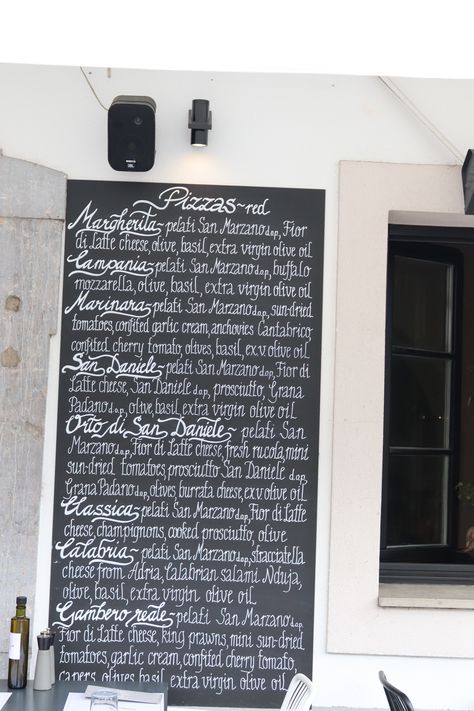 Pizzas~red
Margherita~pelati San Marzano d.o.p., Fior
di Latte cheese, olive, basil, extra virgin olive oil
Campania~pelati San Marzano d.o.p., buffalo
mozzarella, olive, basil, extra virgin olive oil
Marinara~pelati San Marzano d.o.p., sun-dried
tomatoes, confited garlic cream, anchovies Cantabrico
confited cherry tomato, olives, basil, ex.v. olive oil
San Daniele~pelati San Marzano d.o.p., Fior di
Latte cheese, San Daniele d.o.p., prosciutto, Grana
Padano d.o.p., olive, basil, extra virgin olive oil
Orto di San Daniele~ pelati San
Marzano d.o.p., Fior di Latte cheese, fresh rucola, mini
sun-dried tomatoes, prosciutto San Daniele d.o.p.,
Grana Padano d.o.p., olives, burrata cheese, ex.v. olive oil
Classica~pelati San Marzano d.o.p., Fior di Latte
cheese, champignons, cooked prosciutto, olive
Calabria~pelati San Marzano d.o.p., stracciatella
cheese from Adria, Calabrian salami Nduja,
olive, basil, extra virgin olive oil
Gambero reale~ pelati San Marzano d.o.p.,
Fior di Latte cheese, king prawns, mini sun-dried
tomatoes, garlic cream, confited cherry tomato,
capers, olives, basil, extra virgin olive oil